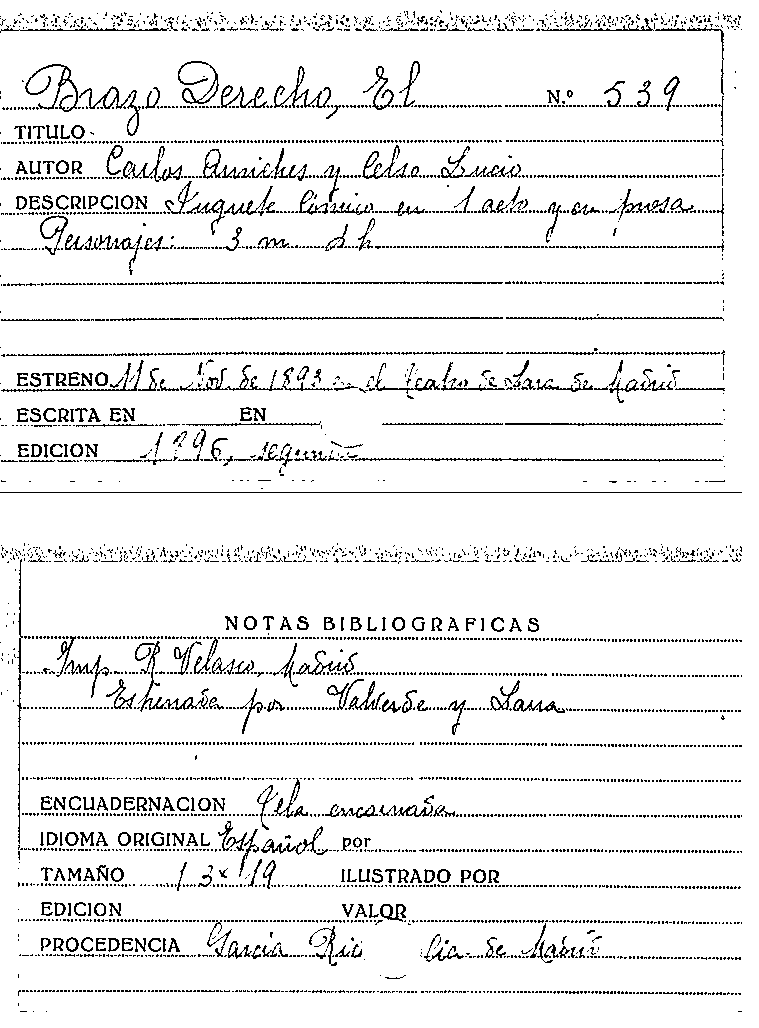 Brazo Derecho, El N.º 539
TITULO
AUTOR Carlos Arniches y Celso Lucio
DESCRIPCION Juguete Cómico en 1 acto y en prosa
Personajes: 3 m h
ESTRENO 11 de Nov. de 1893 en el Teatro de Lara de Madrid
ESCRITA EN EN
EDICION 1896, segunda
NOTAS BIBLIOGRAFICAS
Imp. R Velasco, Madrid
Estrenada por Valverde y Lara
ENCUADERNACION Tela encerada
IDIOMA ORIGINAL Español por
TAMAÑO 13 x 19 ILUSTRADO POR
EDICION VALOR
PROCEDENCIA Garcia Rio de Madrid